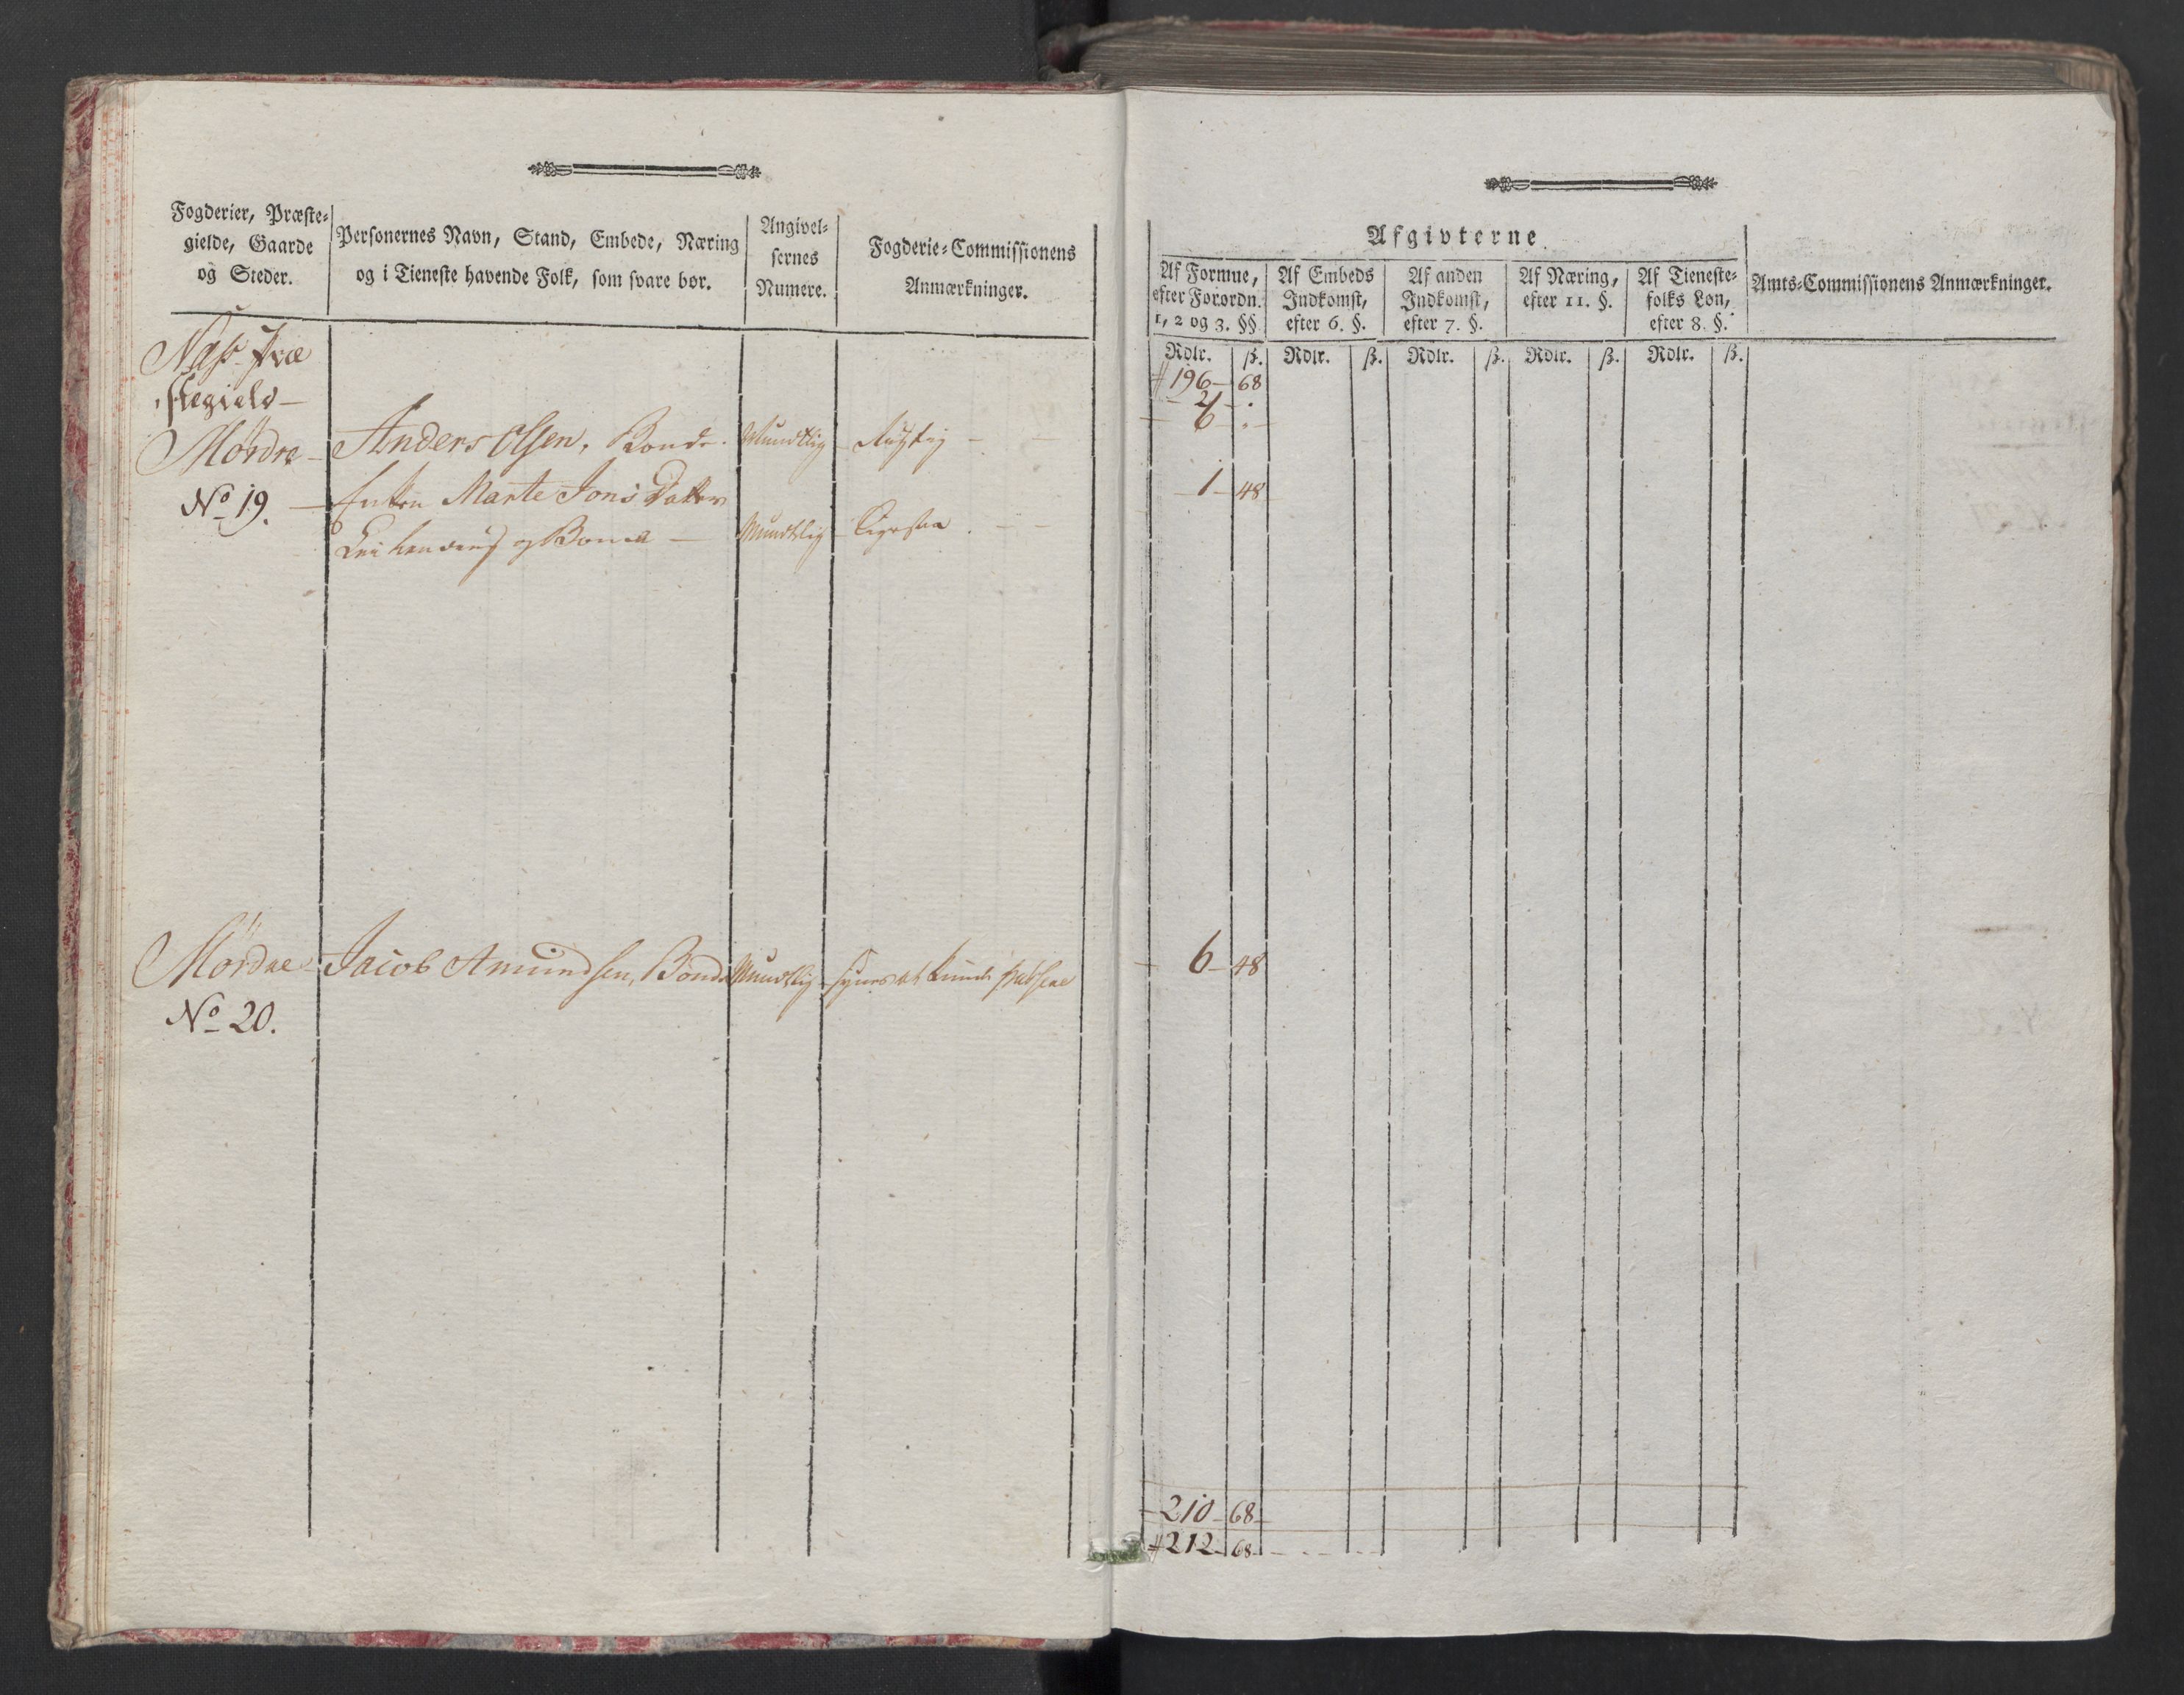 Fogderier, Præste-
gielde, Gaarde
og Steder.
Personernes Navn, Stand, Embede, Næring
og i Tieneste havende Folk, som svare bør.
Angivel-
sernes
Numere.
Fogderie-Commissionens
Anmærkninger.
Næss Præ
stegield
Mördre Anders Olsen, Bonde. Mundtlig Rigtig
No 19. Enken Marte Jons Datter
Mundtlig Ligesaa
Mördre Jacob Amundsen, Bonde Mundtlig synes at kunde
No 20.
Afgivterne
Af Formue,
efter Forordn.
1, 2 og 3. §§.
Af Embeds
Indkomst,
efter 6. §.
Af anden
Indkomst,
efter 7. §.
Af Næring,
efter 11. §.
Af Tieneste-
folks Løn,
efter 8. §.
Amts-Commissionens Anmærkninger.
Rdlr. ß. Rdlr. ß. Rdlr. ß. Rdlr. ß. Rdlr. ß.
196 - 68
2 -
6 -
1 - 48
6 - 48
210 - 68
212 - 68